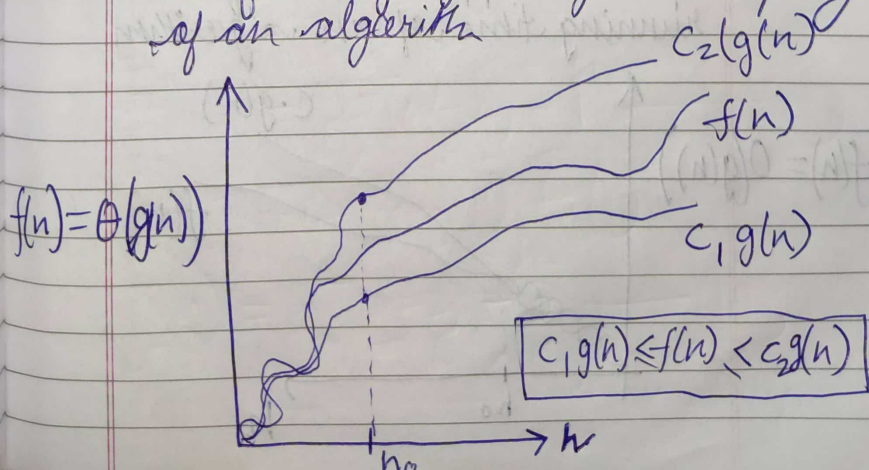 of an algerith
C₂(g(n)
f(n)
f(n) = θ(g(n))
C₁ g(n)
C₁g(n) ≤ f(n) < c₂g(n)
n
n₀